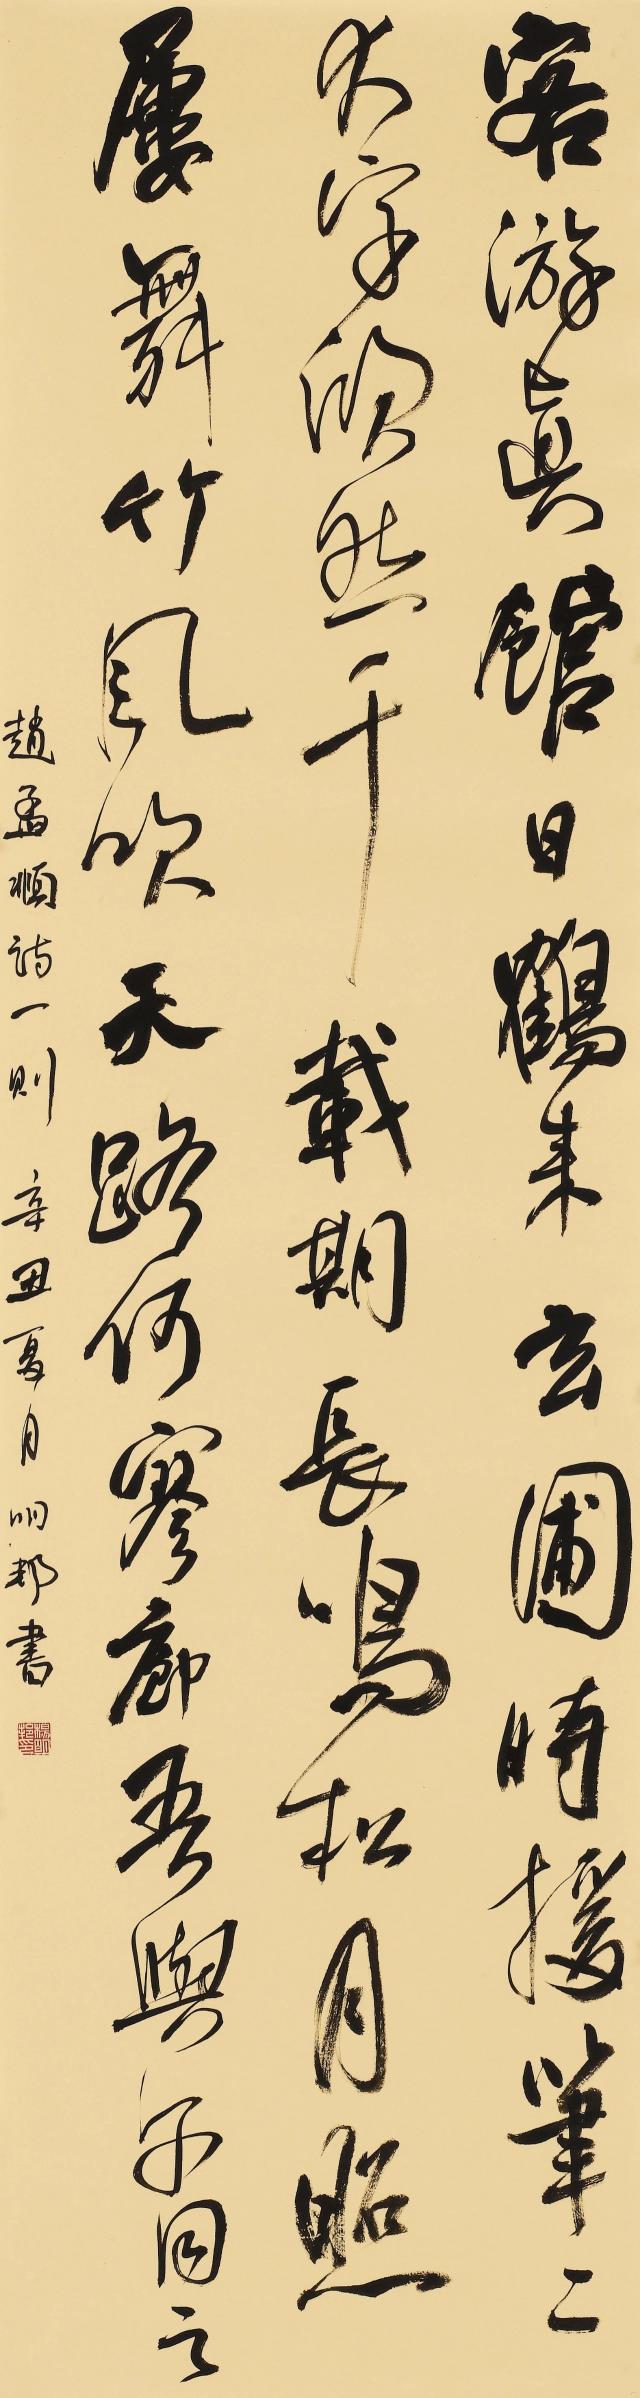 客游真館日鶴來玄圃時援筆二
大字欣然千載期長鳴松月照
屢舞竹風吹天路何寥廓吾與子同之
趙孟頫詩一則 辛丑夏月 明邦書